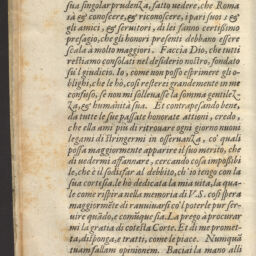 sua singolar prudenza, fatto vedere, che Roma
sà & conoscere, & riconoscere, i pari suoi: &
gli amici, & seruitori, di lei fanno certissimo
presagio, che gli honori presenti debbano essere
scala à molto maggiori. Faccia Dio, che tutti
restiamo consolati nel desiderio nostro, fondato
sù'l giudicio. Io, come non posso esprimere gli o-
blighi, che le hò, così resterei grandemente in me
confuso, se non mi solleuasse la somma gentilez-
za, & humanità sua. Et contrapesando bene,
da tutte le sue passate honorate attioni, credo,
che ella ami più di ritrouare ogni giorno nuoui
legami di stringermi in osseruanza, co' quali
possa maggiormente apparire il suo merito, che
di uedermi affannare, cercando cosa impossibi
le, che è il sodisfar al debbito, ch'io tengo con la
sua cortesia, le hò dedicata la mia uita, la qua-
le come respira nella memoria di V.S. così spera
maggiormēte di rauuiuarsi co'l poterle pur ser-
uire quādo, e comūque sia. La prego à procurar
mi la gratia di cotesta Corte. Et di me promet-
ta, disponga, e tratti, come le piace. Numquā
tuam fallam opinionem. Baciai la mano alli